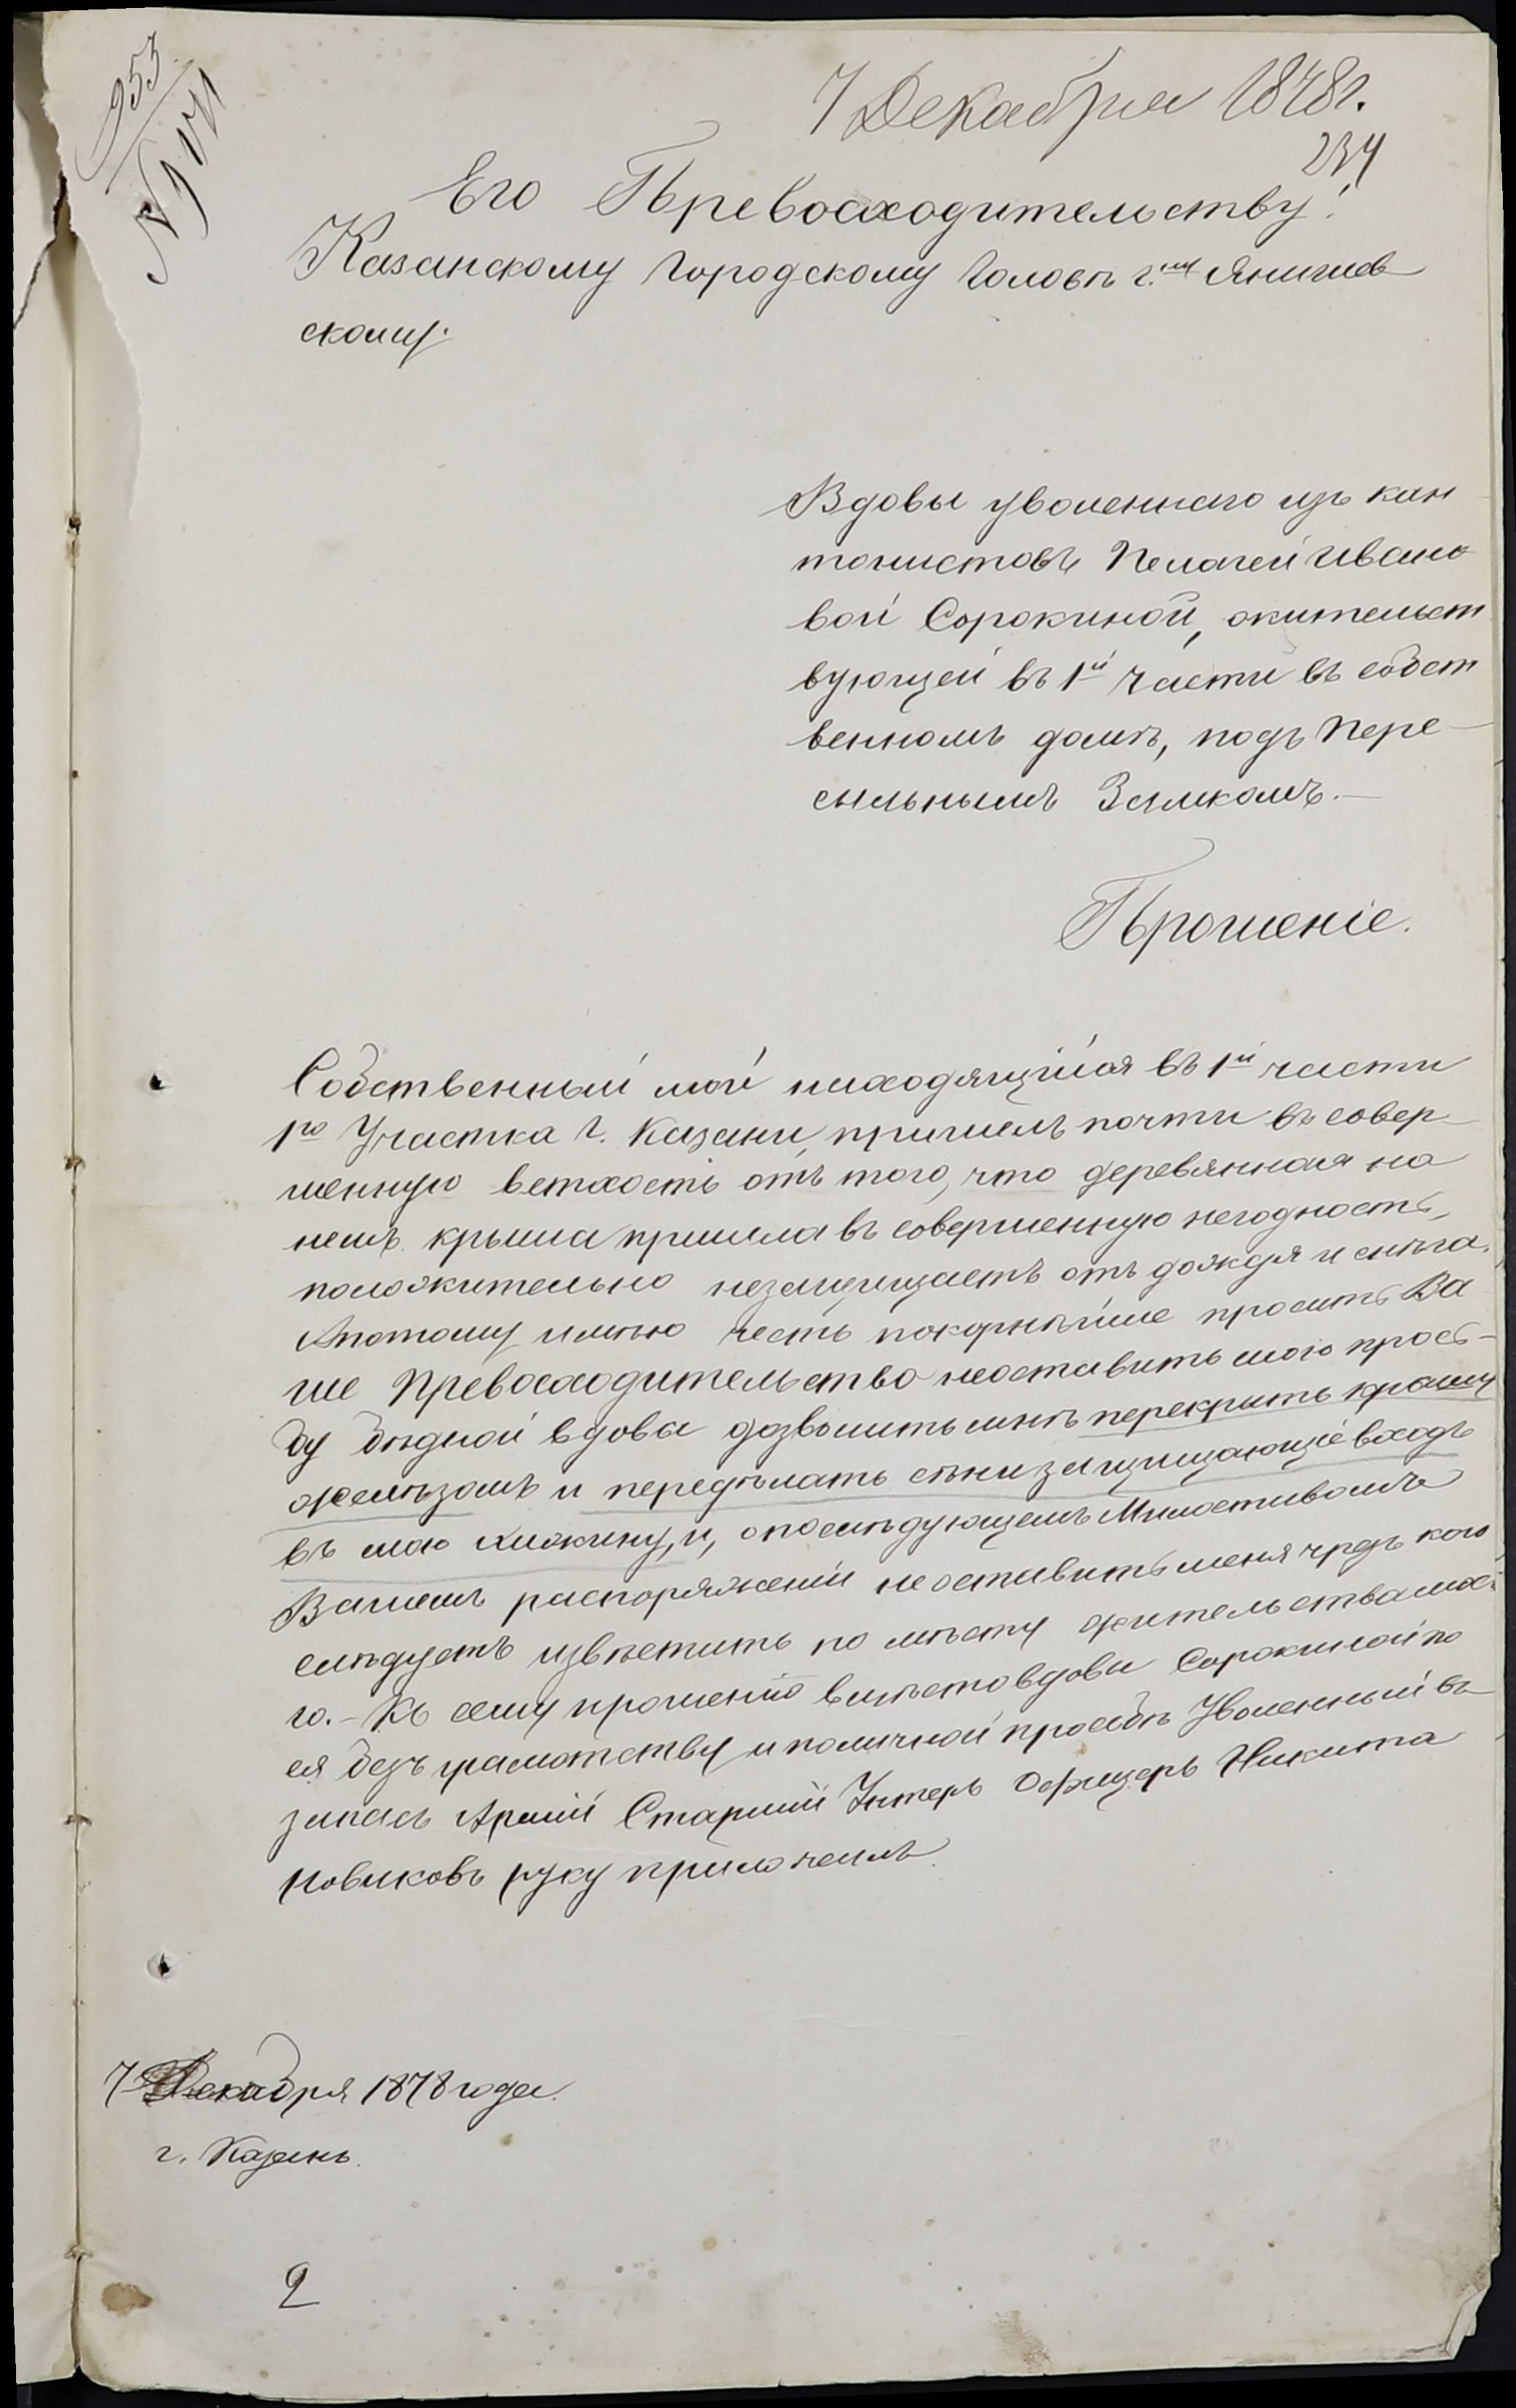 953
7 Декабря 1878г.
234
Его Превосходительству!
Казанскому Городскому Головѣ г.ну Янишев
скому.
Вдовы уволеннаго изъ кан
тонистовъ Пелагеи Ивано
вой Сорокиной, жительст
вующей въ 1й части въ собст
венномъ домѣ, подъ Пере-
сыльнымъ Замкомъ.—
Прошеніе.
Собственный мой находящійся въ 1й части
1го Участка г. Казани, пришелъ почти въ совер-
шенную ветхость отъ того, что деревянная на
немъ крыша пришла въ совершенную негодность,
положительно незащищаетъ отъ дождя и снѣга.
Апотому имѣю честь покорнѣйше просить Ва
ше Превосходительство неоставить мою прось-
бу бѣдной вдовы дозволить мнѣ перекрыть крышу
желѣзомъ и передѣлать сѣни защищающіе входъ
въ мою хижину, и, опослѣдующемъ Милостивомъ
Вашемъ распоряженіи неоставить меня чрезъ кого
слѣдуетъ извѣстить по мѣсту жительства мое
го.- Къ сему прошенію вмѣсто вдовы Сорокиной по
ея безъграмотству и поличной прозьбѣ Уволенный въ
запасъ Арміи Старшій Унтеръ Офицеръ Никита
Новиковъ руку приложилъ.
7 Декабря 1878 года.
г. Казань.
2